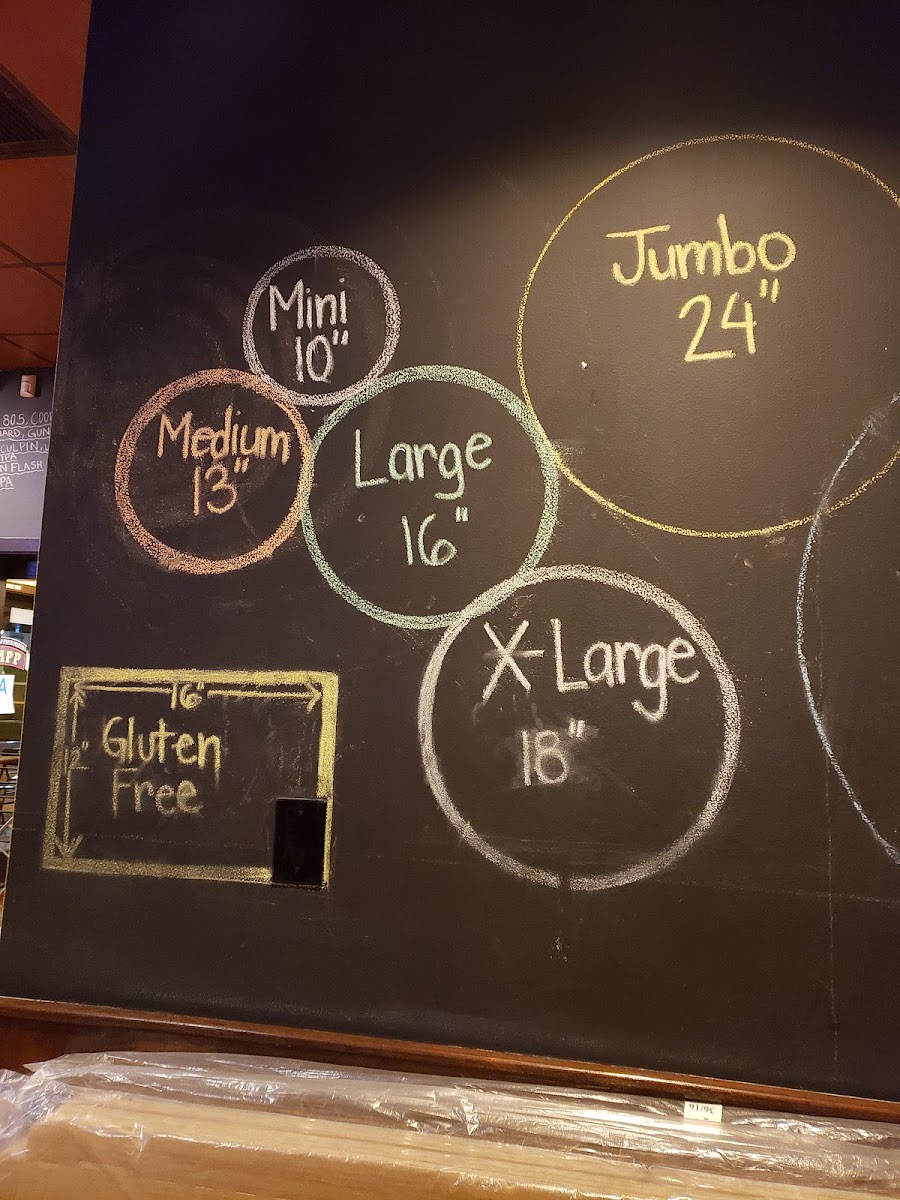 Jumbo
24"
Mini
10"
Medium
13"
Large
16"
X-Large
18"
16"
12"
Gluten
Free
805, COO
ARD, GUN
CULPIN
IPA
N FLASH
PA
MPP
A
36/16